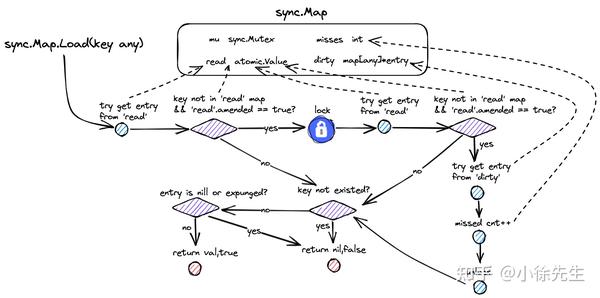 sync.Map
sync.Map.Load(key any)
mu sync.Mutex misses int
read atomic.Value dirty map[any]*entry
try get entry
from 'read'
key not in 'read' map
&& 'read'.amended == true?
lock
try get entry
from 'read'
key not in 'read' map
&& 'read'.amended == true?
yes
yes
no
no
try get entry
from 'dirty'
missed cnt++
key not existed?
entry is nill or expunged?
no
no
yes
yes
return val,true
return nil,false
知乎 @小徐先生